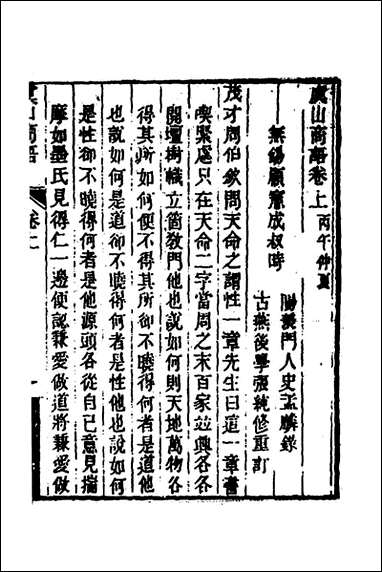 虞山商語卷上丙午仲夏
無錫顧憲成叔時
陽羨門人史孟麟錄
古燕後學張純修重訂
茂才周伯欽問天命之謂性一章先生曰這一章書
喫緊處只在天命二字當周之末百家竝興各各
開壇樹幟立箇教門他也說如何則天地萬物各
得其所如何便不得其所卻不曉得何者是道他
也說如何是道卻不曉得何者是性他也說如何
是性卻不曉得何者是他源頭各從自己意見揣
摩如墨氏見得仁一邊便認兼愛做道將兼愛做
虞山商語
卷上
一